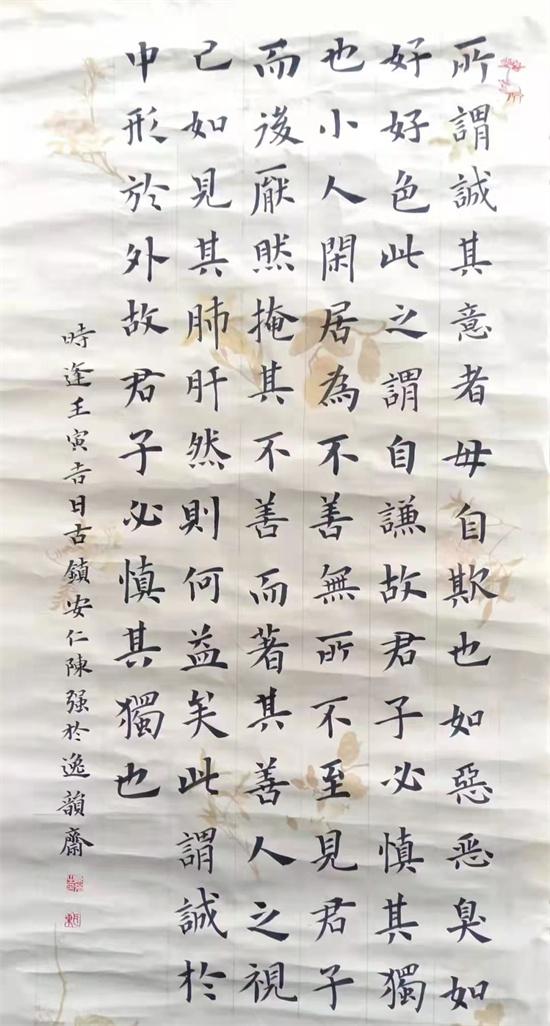 所謂誠其意者毋自欺也如惡惡臭如
好好色此之謂自謙故君子必慎其獨
也小人閑居為不善無所不至見君子
而後厭然掩其不善而著其善人之視
己如見其肺肝然則何益矣此謂誠於
中形於外故君子必慎其獨也
時逢壬寅吉日古鎮安仁陳强於逸韻齋